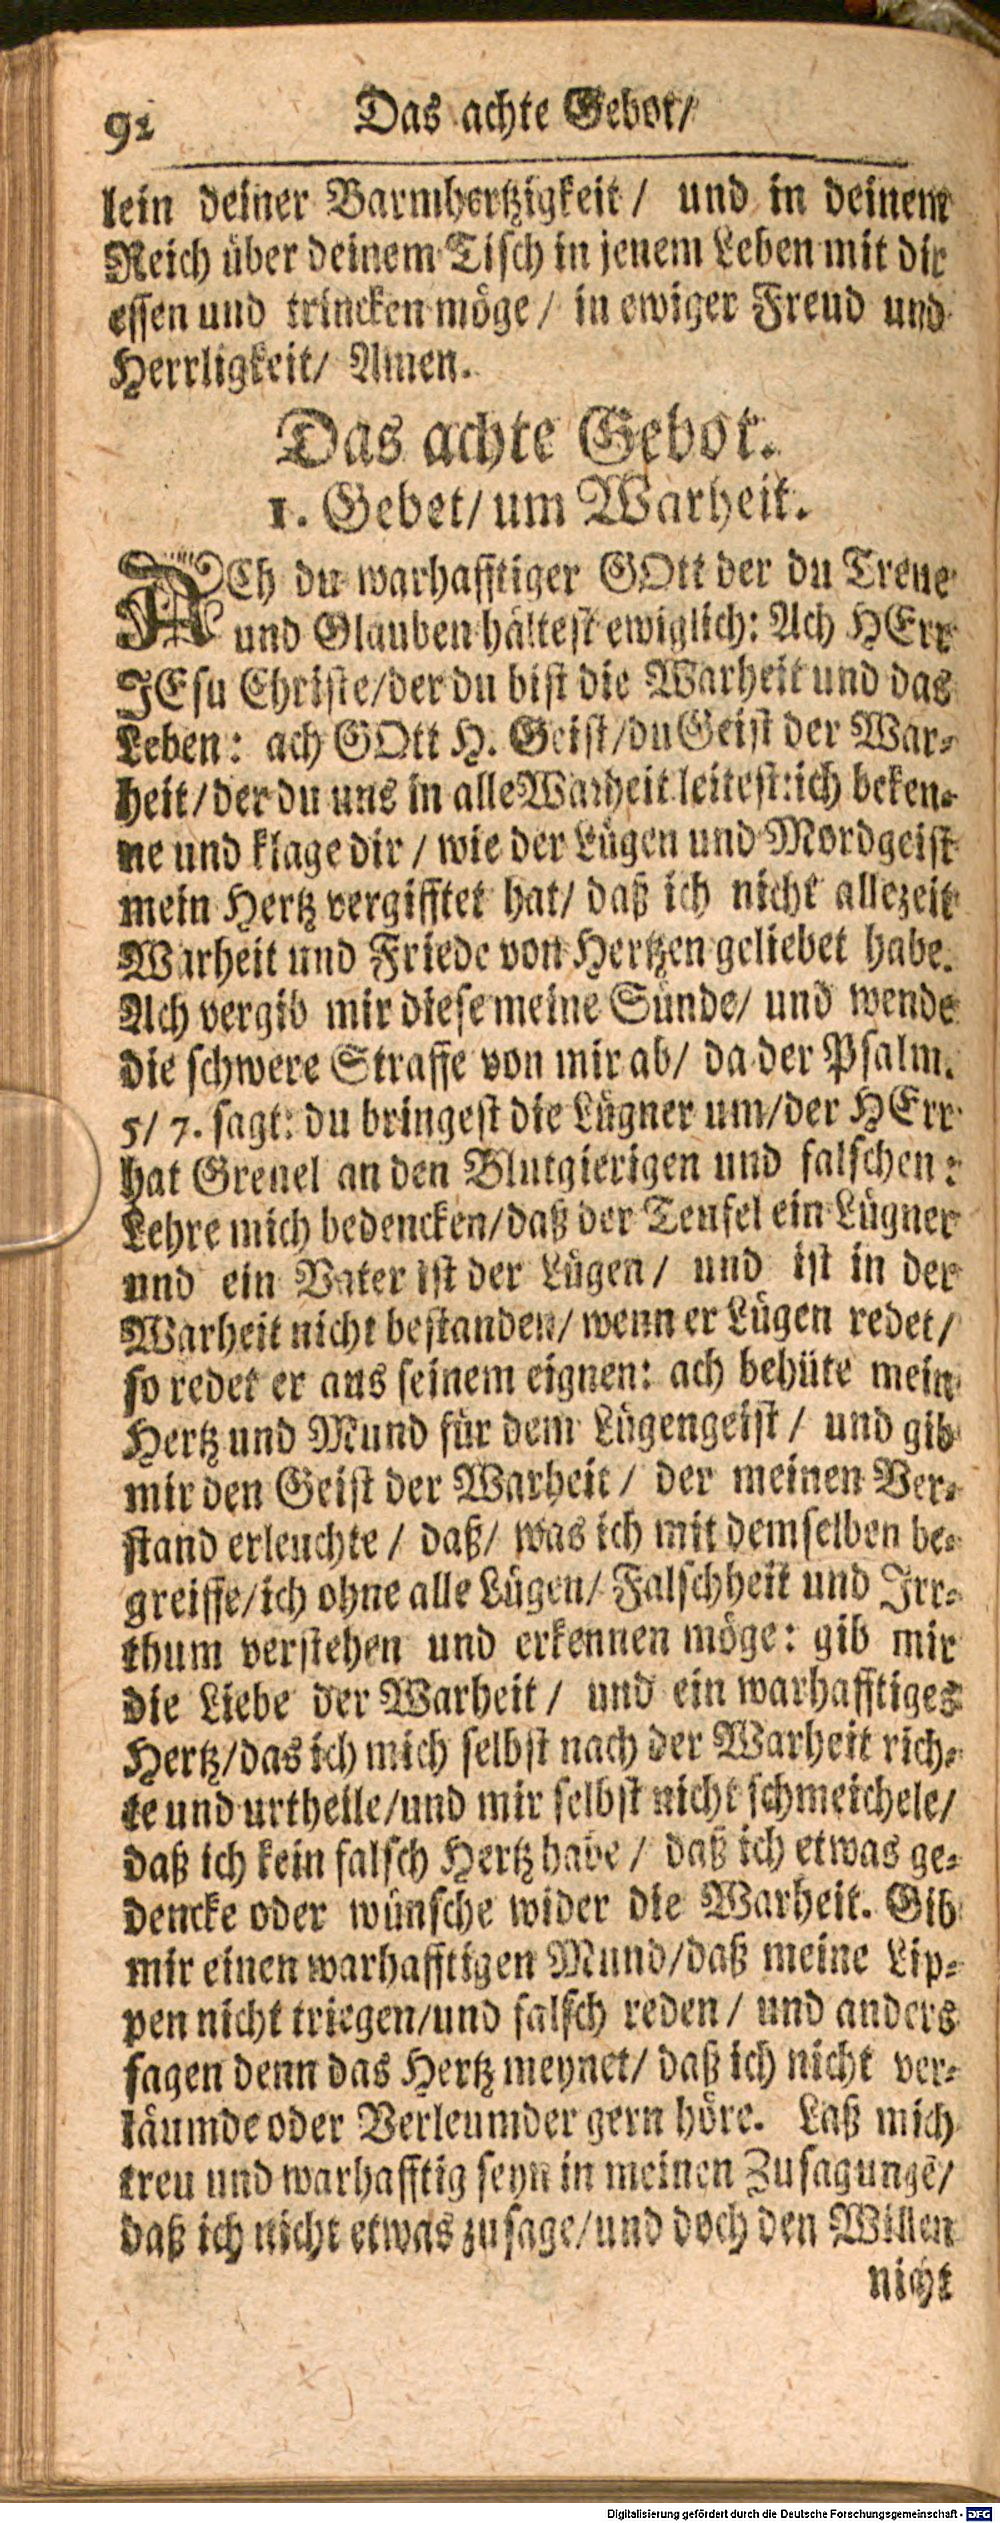 92
Das achte Gebot/
lein deiner Barmhertzigkeit/ und in deinem
Reich über deinem Tisch in jenem Leben mit dir
essen und trincken möge/ in ewiger Freud und
Herrligkeit/ Amen.
Das achte Gebot.
1. Gebet/ um Warheit.
ACh du warhafftiger GOtt der du Treue
und Glauben hältest ewiglich: Ach HErr
JEsu Christe/der du bist die Warheit und das
Leben: ach GOtt H. Geist/du Geist der War-
heit/der du uns in alle Warheit leitest:ich beken-
ne und klage dir / wie der Lügen und Mordgeist
mein Hertz vergifftet hat/ daß ich nicht allezeit
Warheit und Friede von Hertzen geliebet habe.
Ach vergib mir diese meine Sünde/ und wende
die schwere Straffe von mir ab/ da der Psalm.
5/ 7. sagt: du bringest die Lügner um/der HErr
hat Greuel an den Blutgierigen und falschen:
Lehre mich bedencken/daß der Teufel ein Lügner
und ein Vater ist der Lügen/ und ist in der
Warheit nicht bestanden/ wenn er Lügen redet/
so redet er aus seinem eignen: ach behüte mein
Hertz und Mund für dem Lügengeist / und gib
mir den Geist der Warheit / der meinen Ver-
stand erleuchte / daß/ was ich mit demselben be-
greiffe/ich ohne alle Lügen/ Falschheit und Irr-
thum verstehen und erkennen möge: gib mir
die Liebe der Warheit / und ein warhafftiges
Hertz/das ich mich selbst nach der Warheit rich-
te und urtheile/und mir selbst nicht schmeichele/
daß ich kein falsch Hertz habe / daß ich etwas ge-
dencke oder wünsche wider die Warheit. Gib
mir einen warhafftigen Mund/daß meine Lip-
pen nicht triegen/und falsch reden / und anders
sagen denn das Hertz meynet/ daß ich nicht ver-
läumde oder Verleumder gern höre. Laß mich
treu und warhafftig seyn in meinen Zusagungē/
daß ich nicht etwas zusage/und doch den Willen
nicht
Digitalisierung gefördert durch die Deutsche Forschungsgemeinschaft - DFG